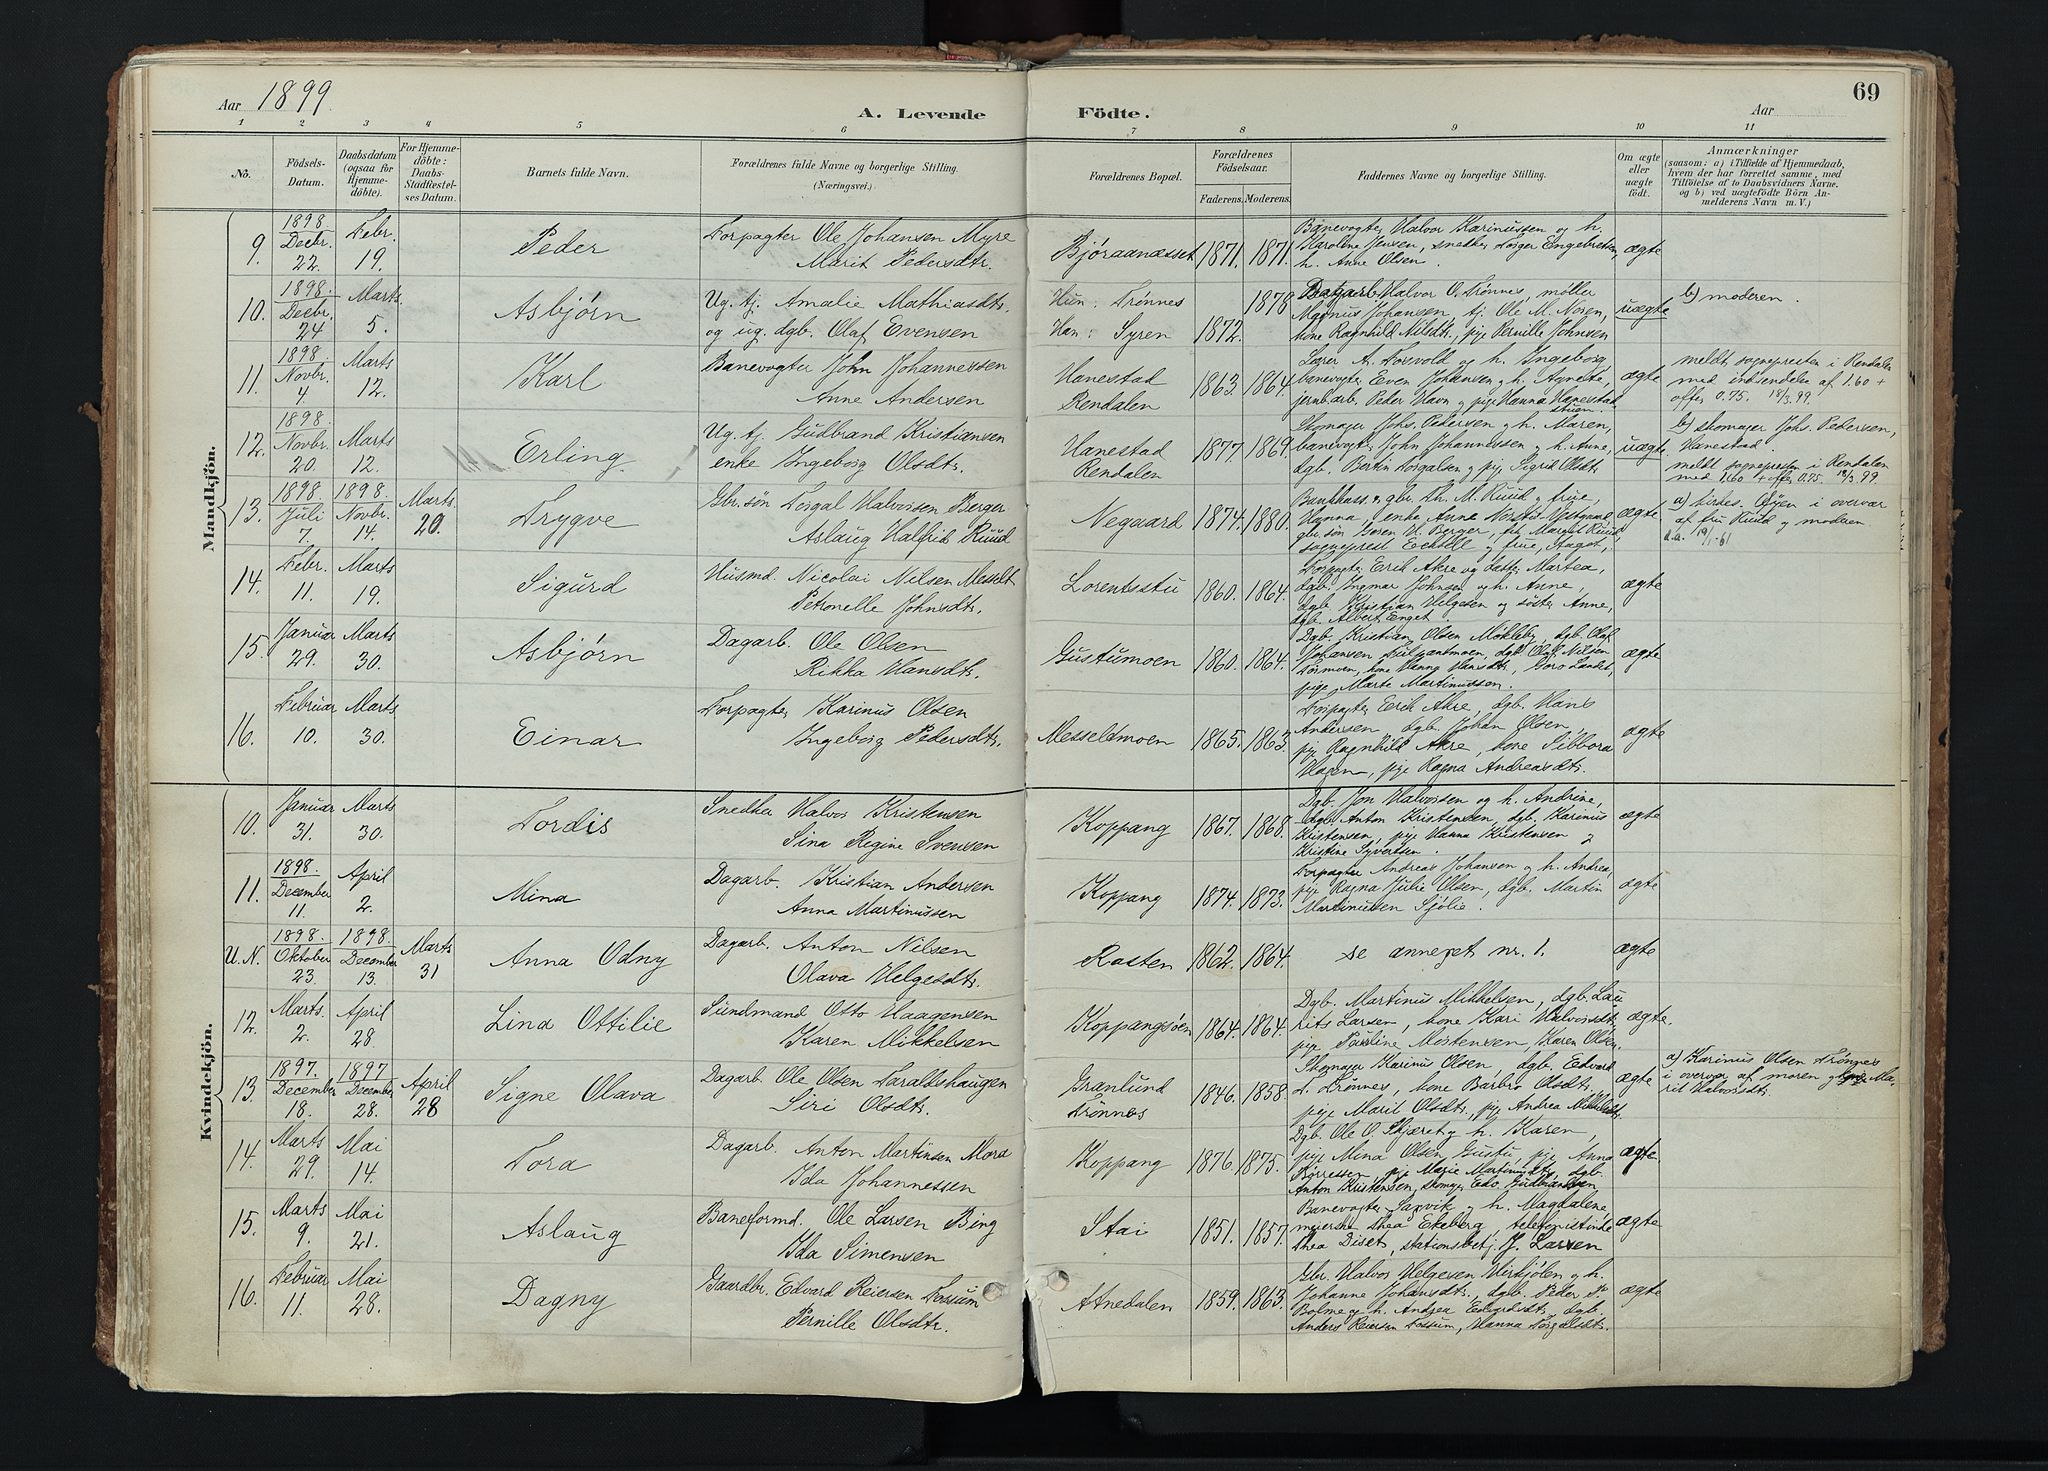 69
Aar 1899.
A. Levende Födte.
Aar
1 2 3 4 5 6 7 8 9 10 11
No.
Födsels-Datum.
Daabsdatum (ogsaa for Hjemmedöbte).
For Hjemmedöbte: Daabs Stadfæstelses Datum.
Barnets fulde Navn.
Forældrenes fulde Navne og borgerlige Stilling. (Næringsvei.)
Forældrenes Bopæl.
Forældrenes Födselsaar.
Faderens. Moderens.
Faddernes Navne og borgerlige Stilling.
Om ægte eller uægte födt.
Anmærkninger
(saasom: a) i Tilfælde af Hjemmedaab, hvem der har forrettet samme, med Tilföielse af to Daabsvidners Navne, og b) ved uægtefödte Börn Anmelderens Navn m. V.)
Mandkjön.
9. 1898 Decbr. 22. Febr. 19. Peder
Forpagter Ole Johansen Myre
Marit Pedersdtr.
Bjøraanæsset 1871. 1871.
Banevogter Halvor Karinussen og h.
Karoline Jensen, snedker Torger Engebretsen,
h. Anne Olsen.
ægte
10. 1898. Decbr. 24 Marts. 5. Asbjørn
Ug. tj. Amalie Mathiasdtr.
og ug. dgb. Olaf Evensen
Hun: Trønnes 1878
Han: Syren 1872.
Dagarb. Halvor O. Trønnes, møller
Magnus Johansen, tj. Ole M. Noren,
kone Ragnhild Nilsdtr., pige Pernille Johnsen
uægte
b) moderen.
11. 1898. Novbr. 4. Marts 12. Karl
Banevogter John Johannessen
Anne Andersen
Hanestad Rendalen 1863. 1864.
Lærer A. Torsvold og h. Ingeborg,
banevogter Even Johansen og h. Agnete,
jernb.arb. Peder Havn og pige Hanna Hanestadstuen.
ægte
meldt sognepresten i Rendalen
med indsendelse af 1.60 +
offer 0.75. 18/3.99.
12. 1898. Novbr. 20. Marts 12. Erling
Ug. tj. Gudbrand Kristiansen
enke Ingeborg Olsdtr.
Hanestad Rendalen 1877. 1869.
Skomager Johs. Pedersen og h. Maren,
banevogter John Johannessen og h. Anne,
dgb. Bertin Torgalsen og pige Sigrid Olsdtr.
uægte.
b) skomager Johs. Pedersen,
Hanestad.
meldt sognepresten i Rendalen
med 1.60 + offer 0.75. 18/3.99.
13. 1898 Juli 7. 1898. Novbr. 14. Marts 20. Trygve
Gbr. søn Torgal Halvorsen Berger
Aslaug Halfrid Ruud
Negaard 1874. 1880.
gbr. Th. M. Ruud og frue,
Hanna, enke Anne
gbr. søn H. Berger, frk. Ruud,
sogneprest og frue, Aagot,
ægte
a) i overvær
af fru Ruud og moderen
14. Febr. 11. Marts 19. Sigurd
Husmd. Nicolai Nilsen Messelt
Petronelle Johnsdtr.
Lorentsstu 1860. 1864.
Forpagter Erik Akre og datter Martea,
dgb. Ingmar Johnsen og h. Anne,
dgb. Kristian Helgesen og søster Anne,
dgb. Albert Enget.
ægte
15. Januar 29. Marts 30. Asbjørn
Dagarb. Ole Olsen
Rikka Hansdtr.
Gustumoen 1860. 1864.
Dgb. Kristian Olsen Møkleby, dgb. Olaf
Johansen dgb. Olaf Nilsen
kone Hanna Hansdtr.,
pige Marte Martinussen.
ægte
16. Februar 10. Marts 30. Einar
Forpagter Karinus Olsen
Ingeborg Pedersdtr.
Messeltmoen 1865. 1863.
Forpagter Erik Akre, dgb. Hans
Andersen, dgb. Johan Olsen,
pige Ragnhild Akre, kone Sibbora
Hagen, pige Ragna Andreasdtr.
ægte
Kvindekjön.
10. Januar 31. Marts 30. Tordis
Snedker Halvor Kristensen
Sina Regine Svensen
Koppang 1867. 1868.
Dgb. Jon Halvorsen og h. Andrine,
dgb. Anton Kristensen, dgb. Karinus
Kristensen, pige Hanna Kristensen og
Kristine Syvertsen.
ægte
11. 1898. December 11. April 2. Mina
Dagarb. Kristian Andersen
Anna Martinussen
Koppang 1874. 1873.
Forpagter Andreas Johansen og h. Andrea,
pige Ragna Julie Olsen, dgb. Martin
Martinussen Sjølie.
ægte
U.N. 1898. Oktober 23 1898. December 13. Marts 31 Anna Odny
Dagarb. Anton Nilsen
Olava Helgesdtr.
Rasten 1862. 1864.
se annexet nr. 1.
ægte
12. Marts. 2. April 28. Lina Ottilie
Sundmand Otto Haagensen
Karen Mikkelsen
Koppangsøen 1864. 1864.
Dgb. Martinus Mikkelsen, dgb. Lau
rits Larsen, kone Kari Halvorsdtr.,
pige Pauline Mortensen, Karen Olsen.
ægte.
13. 1897. December 18. 1897 December 28. April 28 Signe Olava
Dagarb. Ole Olsen Taraldshaugen
Siri Olsdtr.
Granlund Trønnes 1846. 1858.
Skomager Karinus Olsen, dgb. Edvard
Trønnes, kone Barbro Olsdtr.,
pige Marit Olsdtr., pige Andrea
ægte
a) Karinus Olsen Trønnes
i overvær af moren og pige Ma-
rit Halvorsdtr.
14. Marts 29. Mai 14. Tora
Dagarb. Anton Martinsen Mora
Ida Johannessen
Koppang 1876. 1875.
Dgb. Ole O. Skjæret og h. Karen,
pige Mina Olsen Gustu, pige Anna
pige Marie Martinusdtr., dgb.
Anton Kristensen, skomager Edv. Gudbrandsen
ægte.
15. Marts 9. Mai 21. Aslaug
Baneformd. Ole Larsen Bing
Ida Simensen
Stai 1851. 1857.
Banevogter Sagvik og h. Magdalene,
meierske Thea Ekeberg, telefonistinde
Thea Diset, stationsbetj. J. Larsen
ægte
16. Februar 11. Mai 28. Dagny
Gaardbr. Edvard Reiersen Fossum
Pernille Olsdtr.
Atnedalen 1859. 1863.
Gbr. Halvor Helgesen Hirkjølen og h.
Johanne Johansdtr., dgb. Peder
og h. Andrea Edvardsdtr., dgb.
Anders Reiersen Fossum, Hanna Torgalsdtr.
ægte